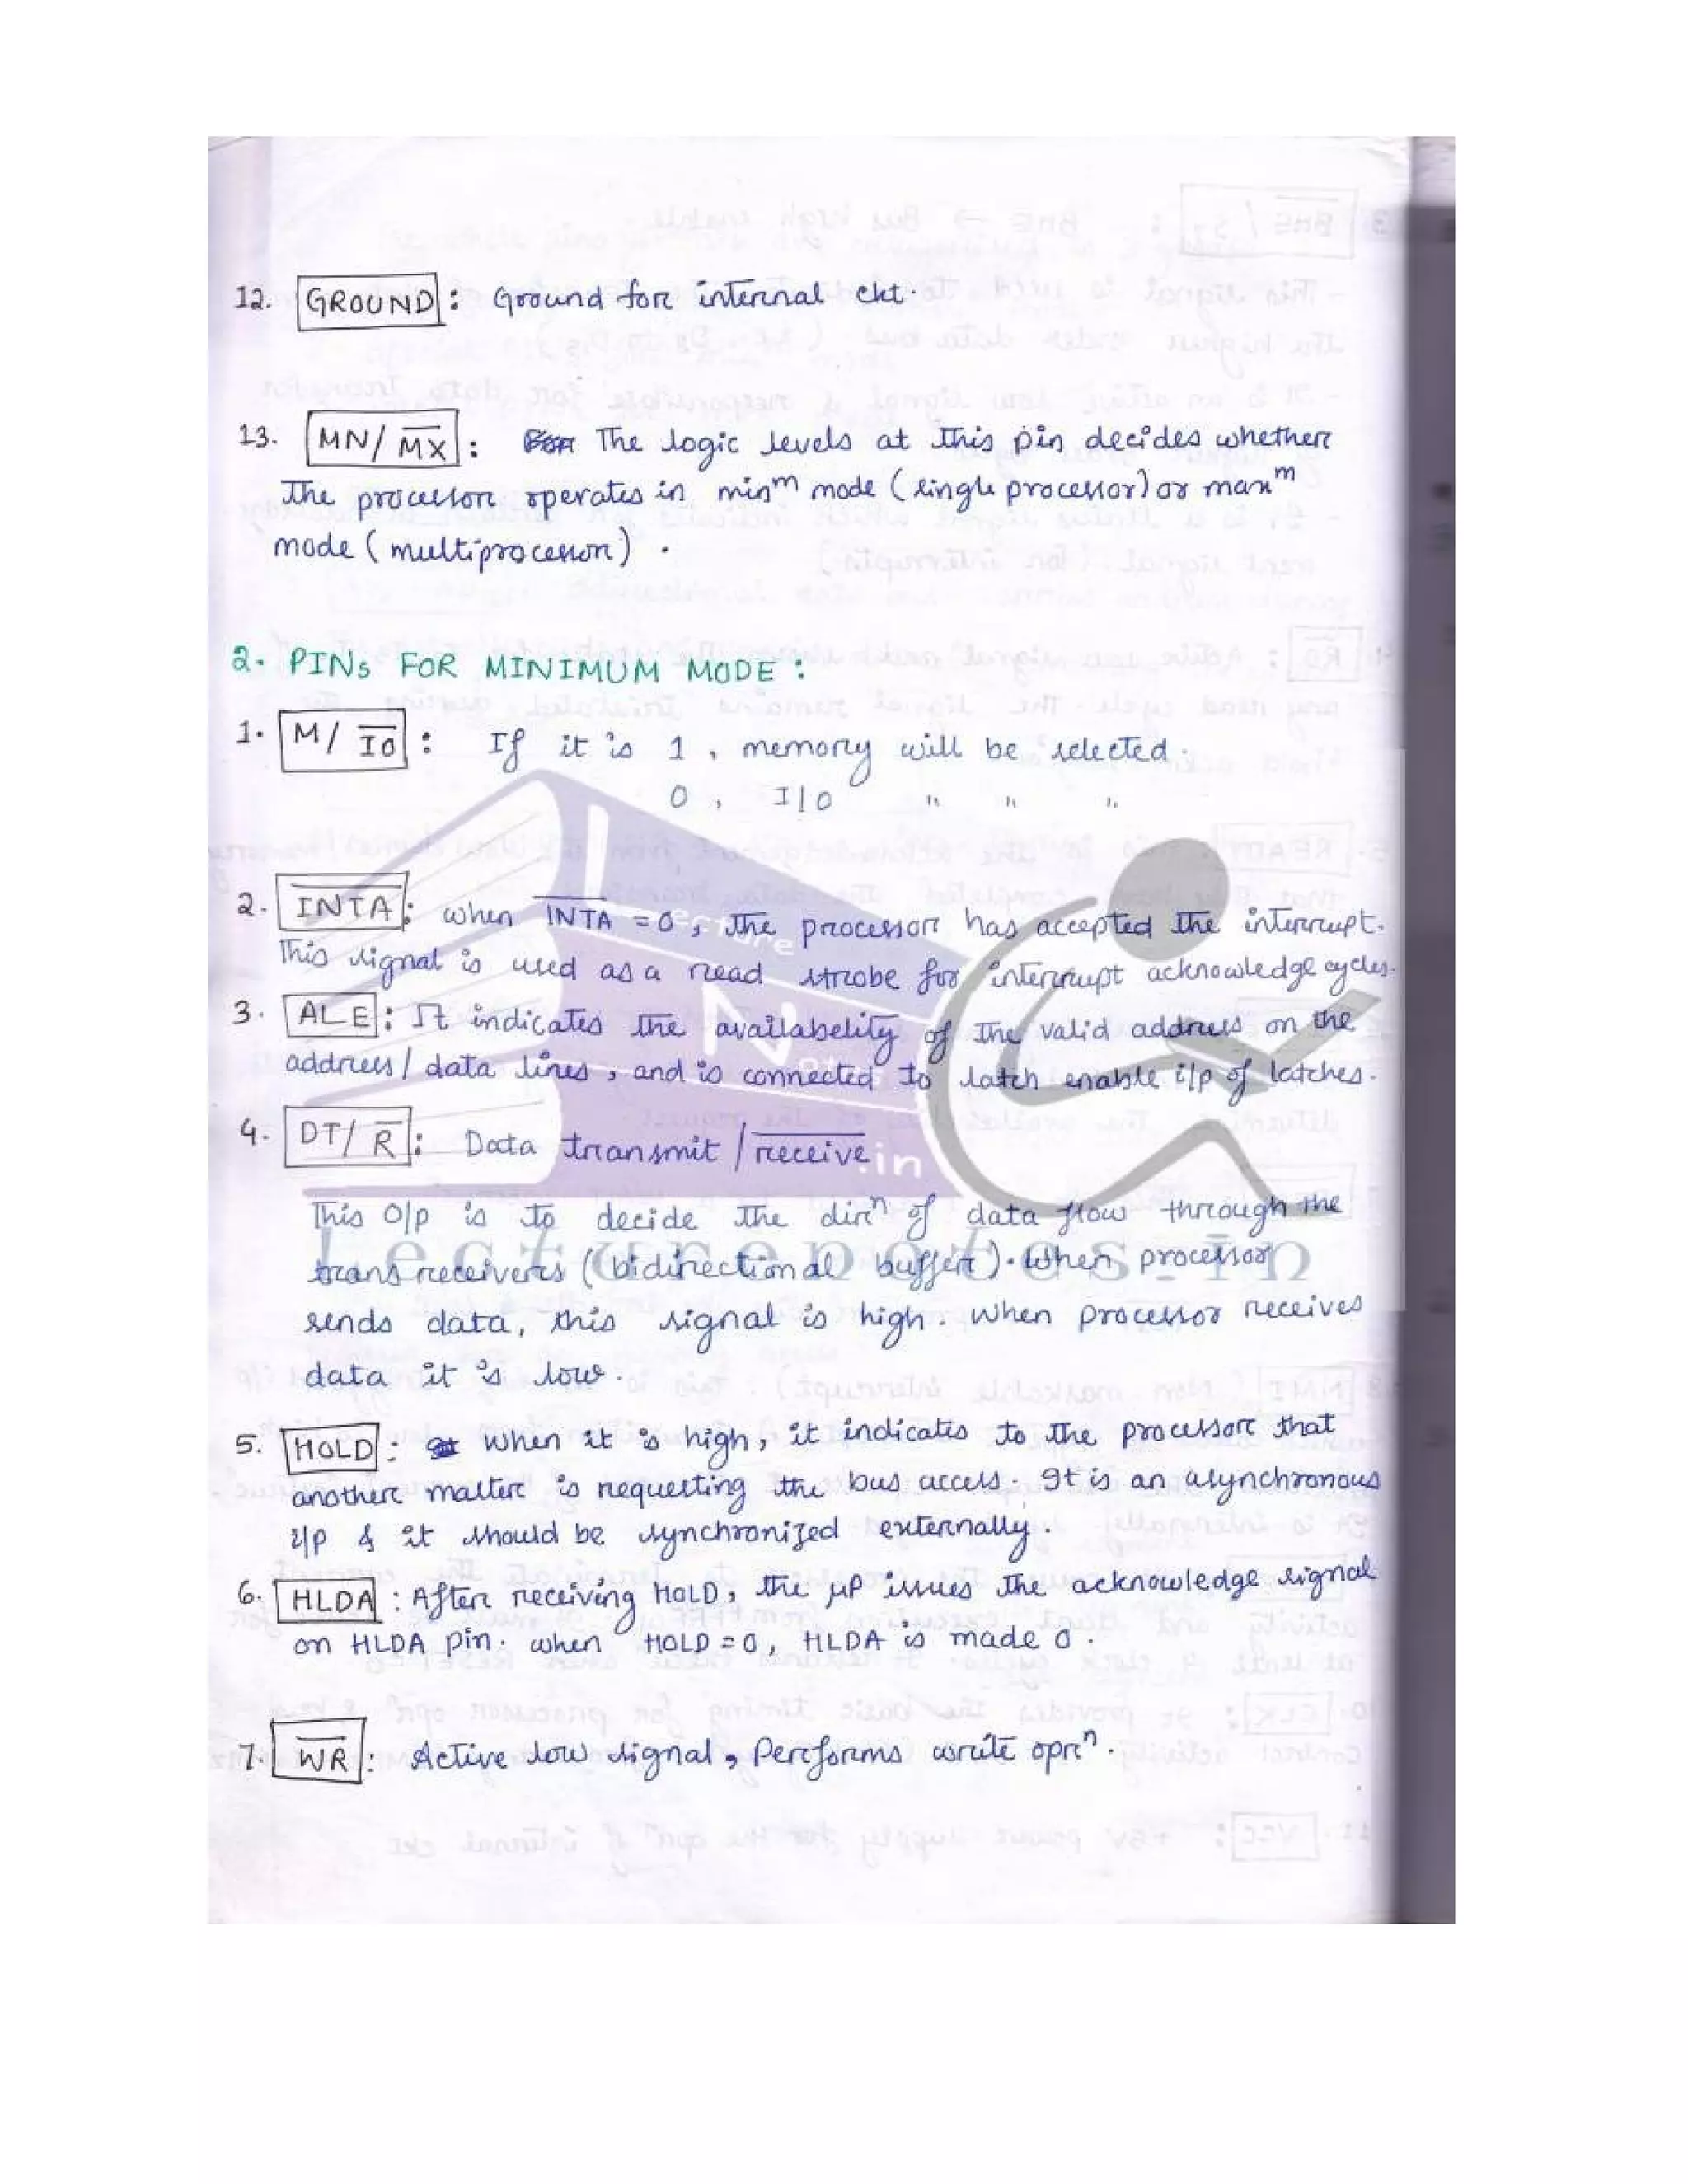 12. GROUND : Ground for internal ckt.
13. MN/M̅X̅ : The logic levels at this pin decides whether
The processor operates in minᵐ mode (single processor) or maxᵐ
mode (multiprocessor).
2. PINs FOR MINIMUM MODE :
1. M/I̅O̅ : If it is 1, memory will be selected.
0, I/O " " "
2. I̅N̅T̅A̅ : when I̅N̅T̅A̅ = 0, the processor has accepted the interrupt.
This signal is used as a read strobe for interrupt acknowledge cycles.
3. ALE : It indicates the availabelity of the valid address on the
address / data lines, and is connected to latch enable i/p of latches.
4. DT/R̅ : Data transmit / r̅e̅c̅e̅i̅v̅e̅
This O/p is to decide the dirⁿ of data flow through the
trans receivers (bidirectional buffer). When processor
sends data, this signal is high. When processor receives
data it is low.
5. HOLD : when it is high, it indicates to the processor that
another master is requesting the bus access. It is an asynchronous
i/p & it should be synchronized externally.
6. HLDA : After receiving HOLD, the μP issues the acknowledge signal
on HLDA pin. when HOLD = 0, HLDA is made 0.
7. W̅R̅ : Active low signal, Performs write oprⁿ.
Lecture
Notes
.in
Lecturenotes.in